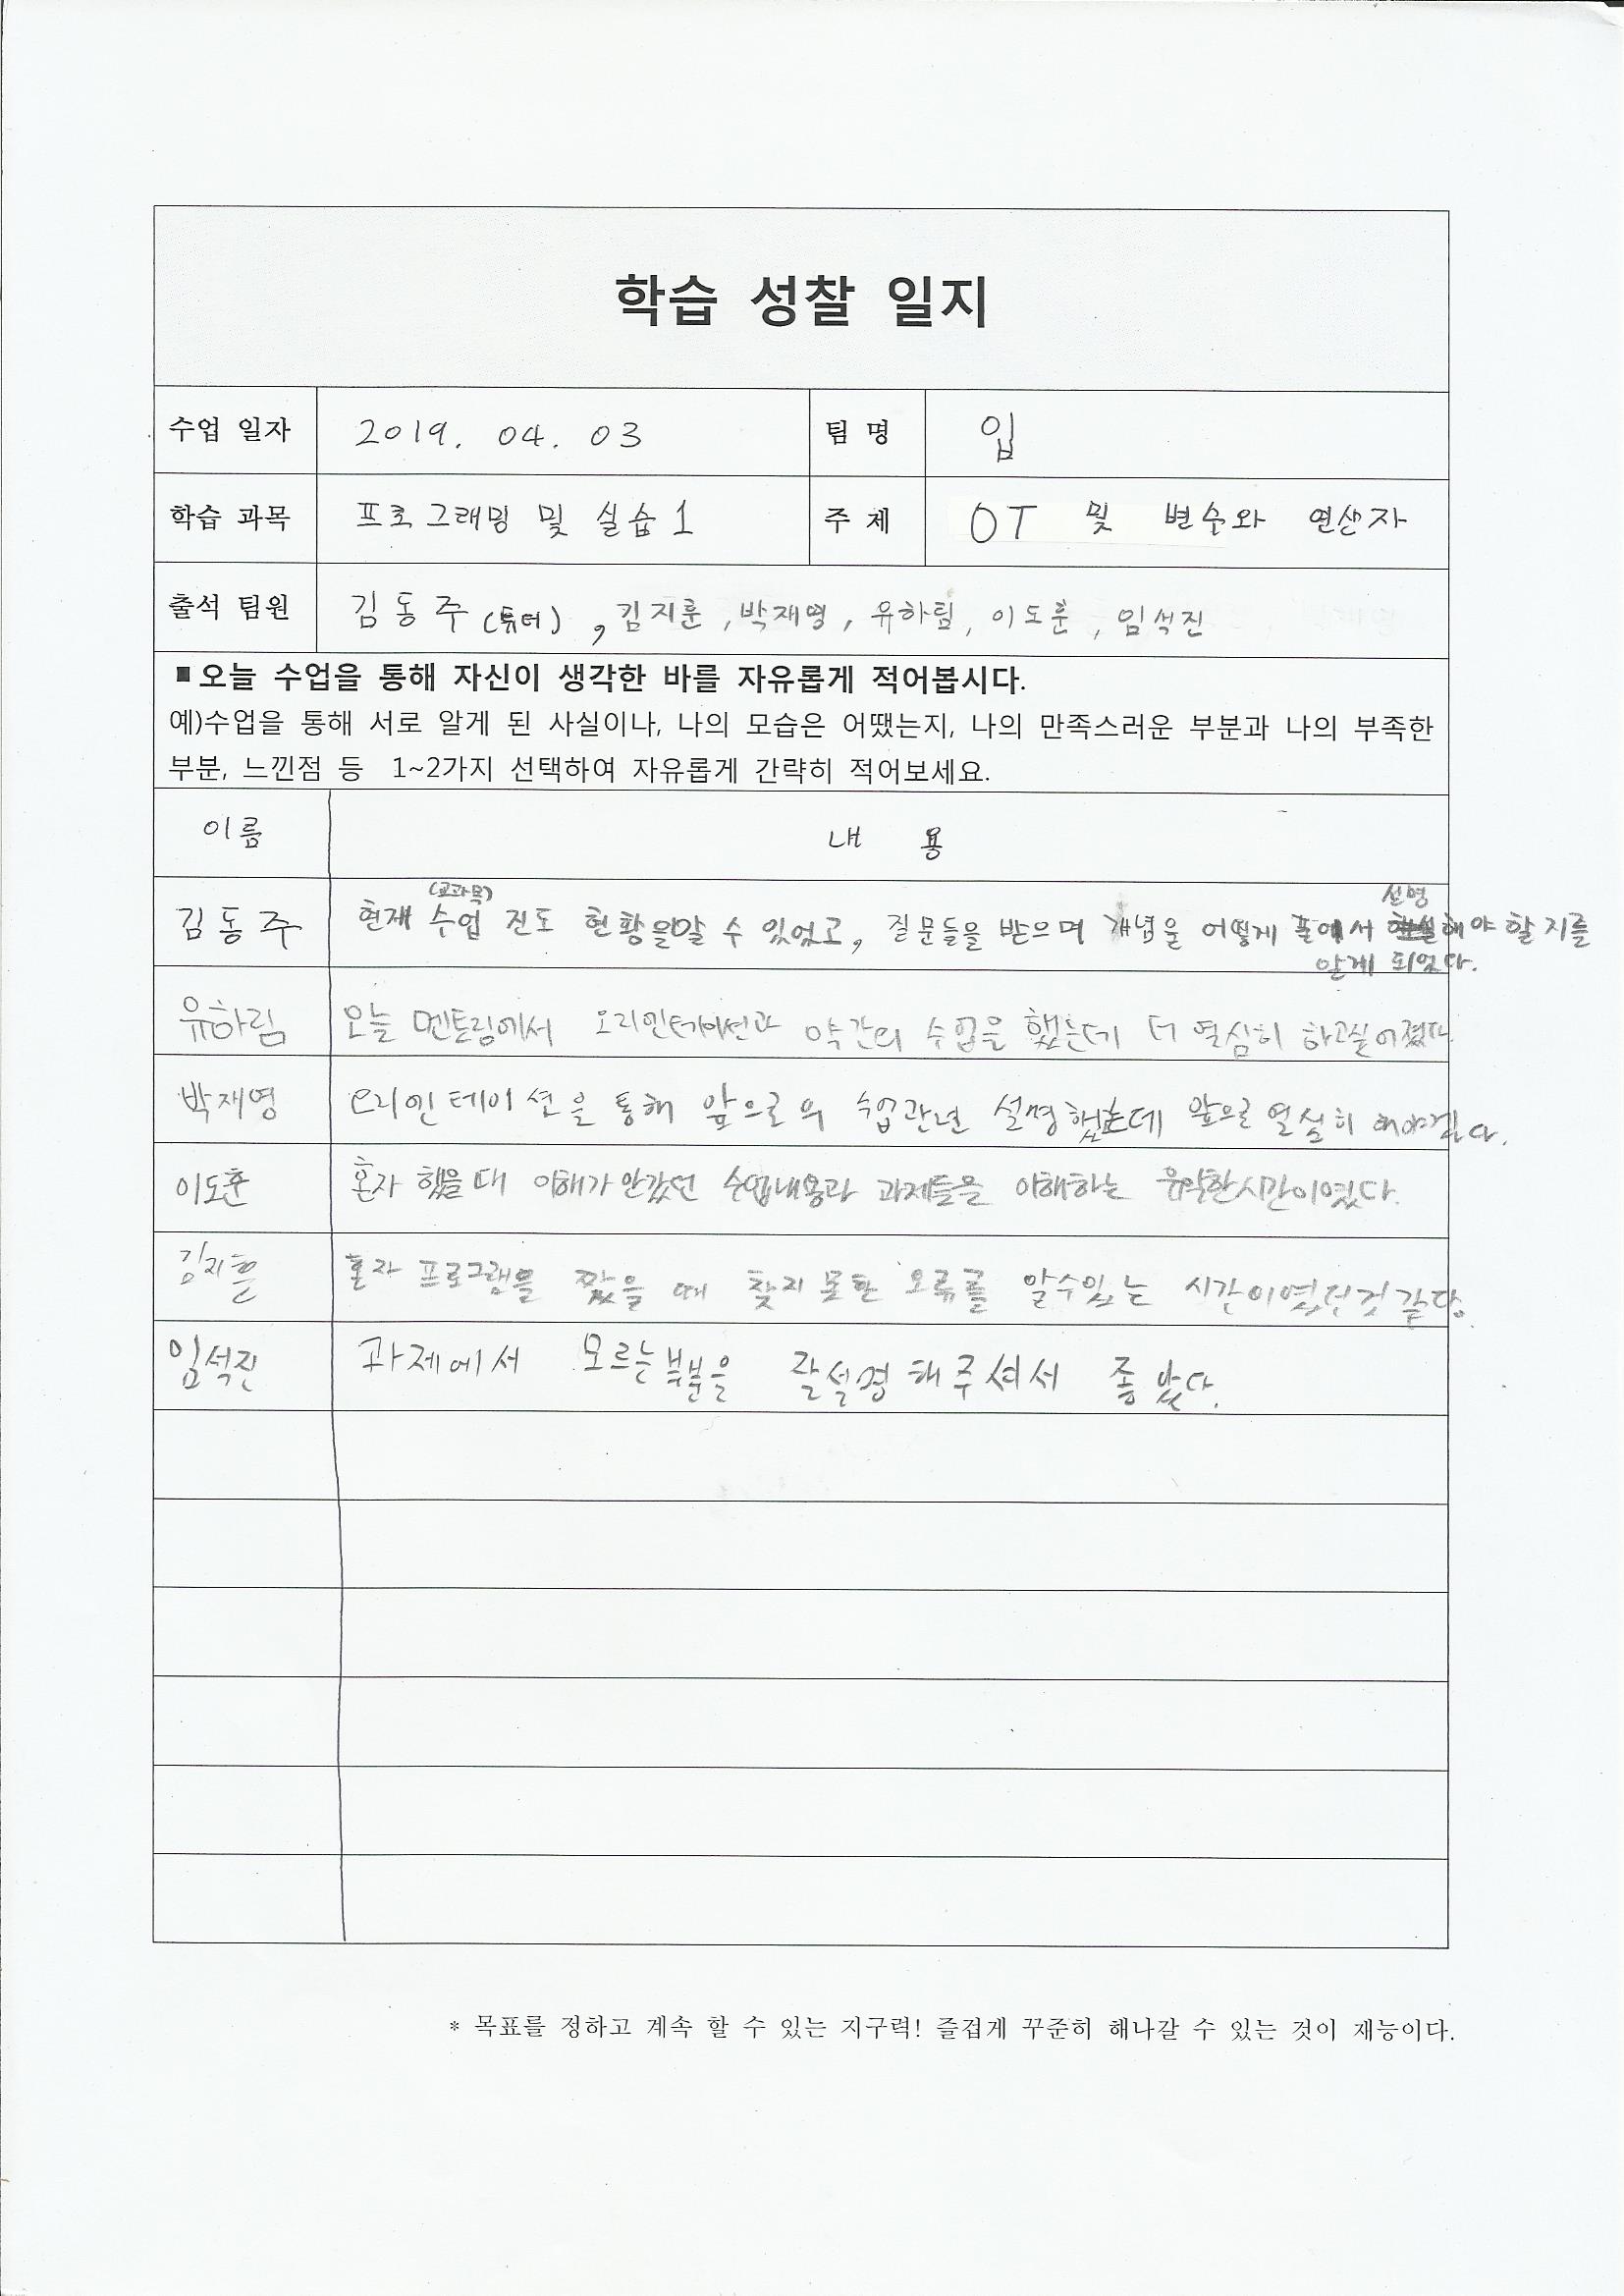 학습 성찰 일지
수업 일자 2019. 04. 03 팀 명 입
학습 과목 프로그래밍 및 실습1 주 제 OT 및 변수와 연산자
출석 팀원 김동주 (튜터), 김지훈, 박재영, 유하림, 이도훈, 임석진
■ 오늘 수업을 통해 자신이 생각한 바를 자유롭게 적어봅시다.
예)수업을 통해 서로 알게 된 사실이나, 나의 모습은 어땠는지, 나의 만족스러운 부분과 나의 부족한
부분, 느낀점 등 1~2가지 선택하여 자유롭게 간략히 적어보세요.
이름 내 용
(교과목) 설명
김동주 현재 수업 진도 현황을 알 수 있었고, 질문들을 받으며 개념을 어떻게 풀어서 해야 할지를
알게 되었다.
유하림 오늘 멘토링에서 오리엔테이션과 약간의 수업을 했는데 더 열심히 하고싶어졌다
박재영 오리엔테이션을 통해 앞으로의 수업관련 설명했는데 앞으로 열심히 해야겠다.
이도훈 혼자 했을때 이해가 안갔던 수업내용과 과제들을 이해하는 유익한시간이였다.
김지훈 혼자 프로그램을 짰을 때 찾지 못한 오류를 알수있는 시간이였던것 같다.
임석진 과제에서 모르는 부분을 잘설명해주셔서 좋았다.
* 목표를 정하고 계속 할 수 있는 지구력! 즐겁게 꾸준히 해나갈 수 있는 것이 재능이다.